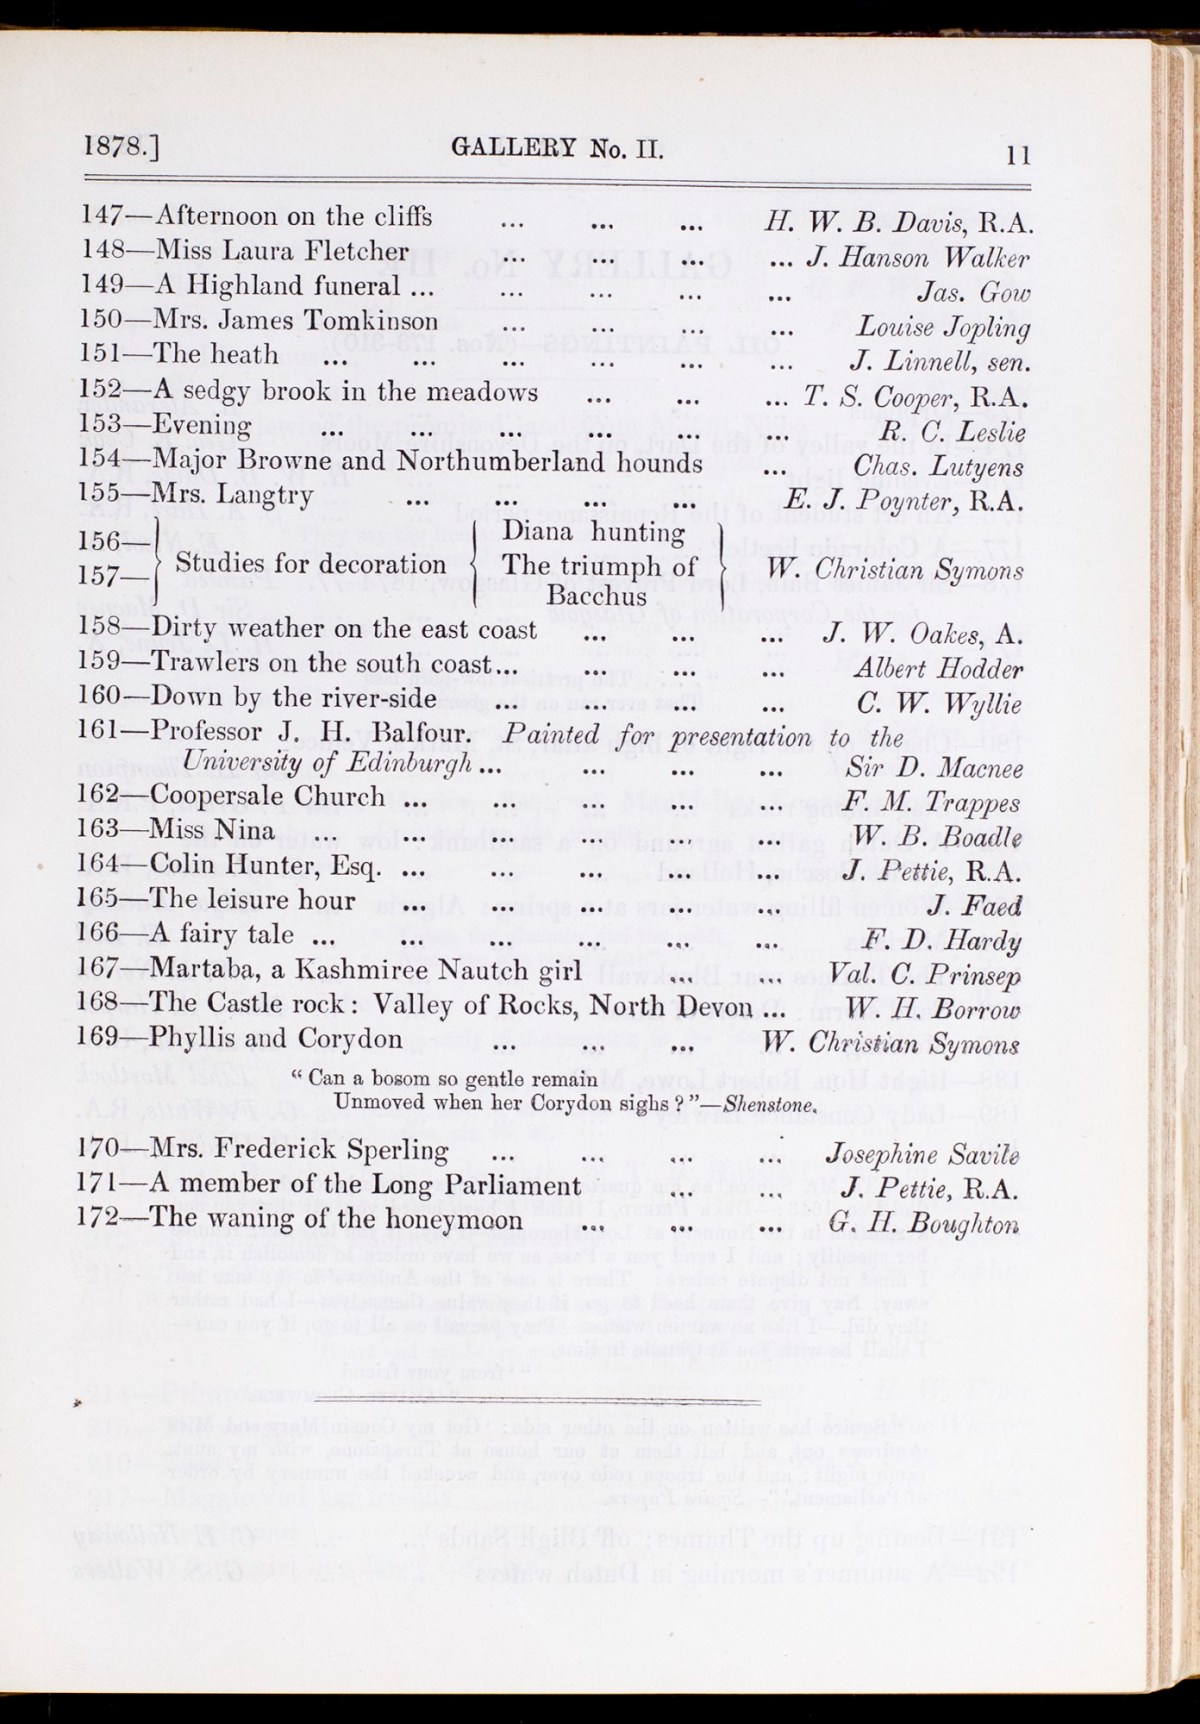 1878.] GALLERY No. II. 11
147—Afternoon on the cliffs ... ... ... H. W. B. Davis, R.A.
148—Miss Laura Fletcher ... ... ... ... J. Hanson Walker
149—A Highland funeral ... ... ... ... ... Jas. Gow
150—Mrs. James Tomkinson ... ... ... ... Louise Jopling
151—The heath ... ... ... ... ... ... J. Linnell, sen.
152—A sedgy brook in the meadows ... ... ... T. S. Cooper, R.A.
153—Evening ... ... ... ... ... ... R. C. Leslie
154—Major Browne and Northumberland hounds ... Chas. Lutyens
155—Mrs. Langtry ... ... ... ... E. J. Poynter, R.A.
156— Diana hunting
157— } Studies for decoration { The triumph of } W. Christian Symons
Bacchus
158—Dirty weather on the east coast ... ... ... J. W. Oakes, A.
159—Trawlers on the south coast... ... ... ... Albert Hodder
160—Down by the river-side ... ... ... ... C. W. Wyllie
161—Professor J. H. Balfour. Painted for presentation to the
University of Edinburgh ... ... ... ... Sir D. Macnee
162—Coopersale Church ... ... ... ... ... F. M. Trappes
163—Miss Nina ... ... ... ... ... ... W. B. Boadle
164—Colin Hunter, Esq. ... ... ... ... ... J. Pettie, R.A.
165—The leisure hour ... ... ... ... ... J. Faed
166—A fairy tale ... ... ... ... ... ... F. D. Hardy
167—Martaba, a Kashmiree Nautch girl ... ... Val. C. Prinsep
168—The Castle rock: Valley of Rocks, North Devon ... W. H. Borrow
169—Phyllis and Corydon ... ... ... W. Christian Symons
“ Can a bosom so gentle remain
Unmoved when her Corydon sighs ? ”—Shenstone.
170—Mrs. Frederick Sperling ... ... ... ... Josephine Savile
171—A member of the Long Parliament ... ... J. Pettie, R.A.
172—The waning of the honeymoon ... ... ... G. H. Boughton